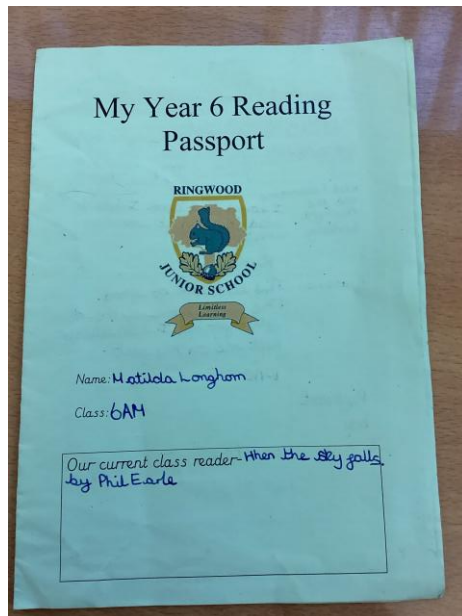 My Year 6 Reading
Passport
RINGWOOD
JUNIOR SCHOOL
Limitless
Learning
Name: Matilda Longhorn
Class: 6AM
Our current class reader- When the sky falls
by Phil Earle